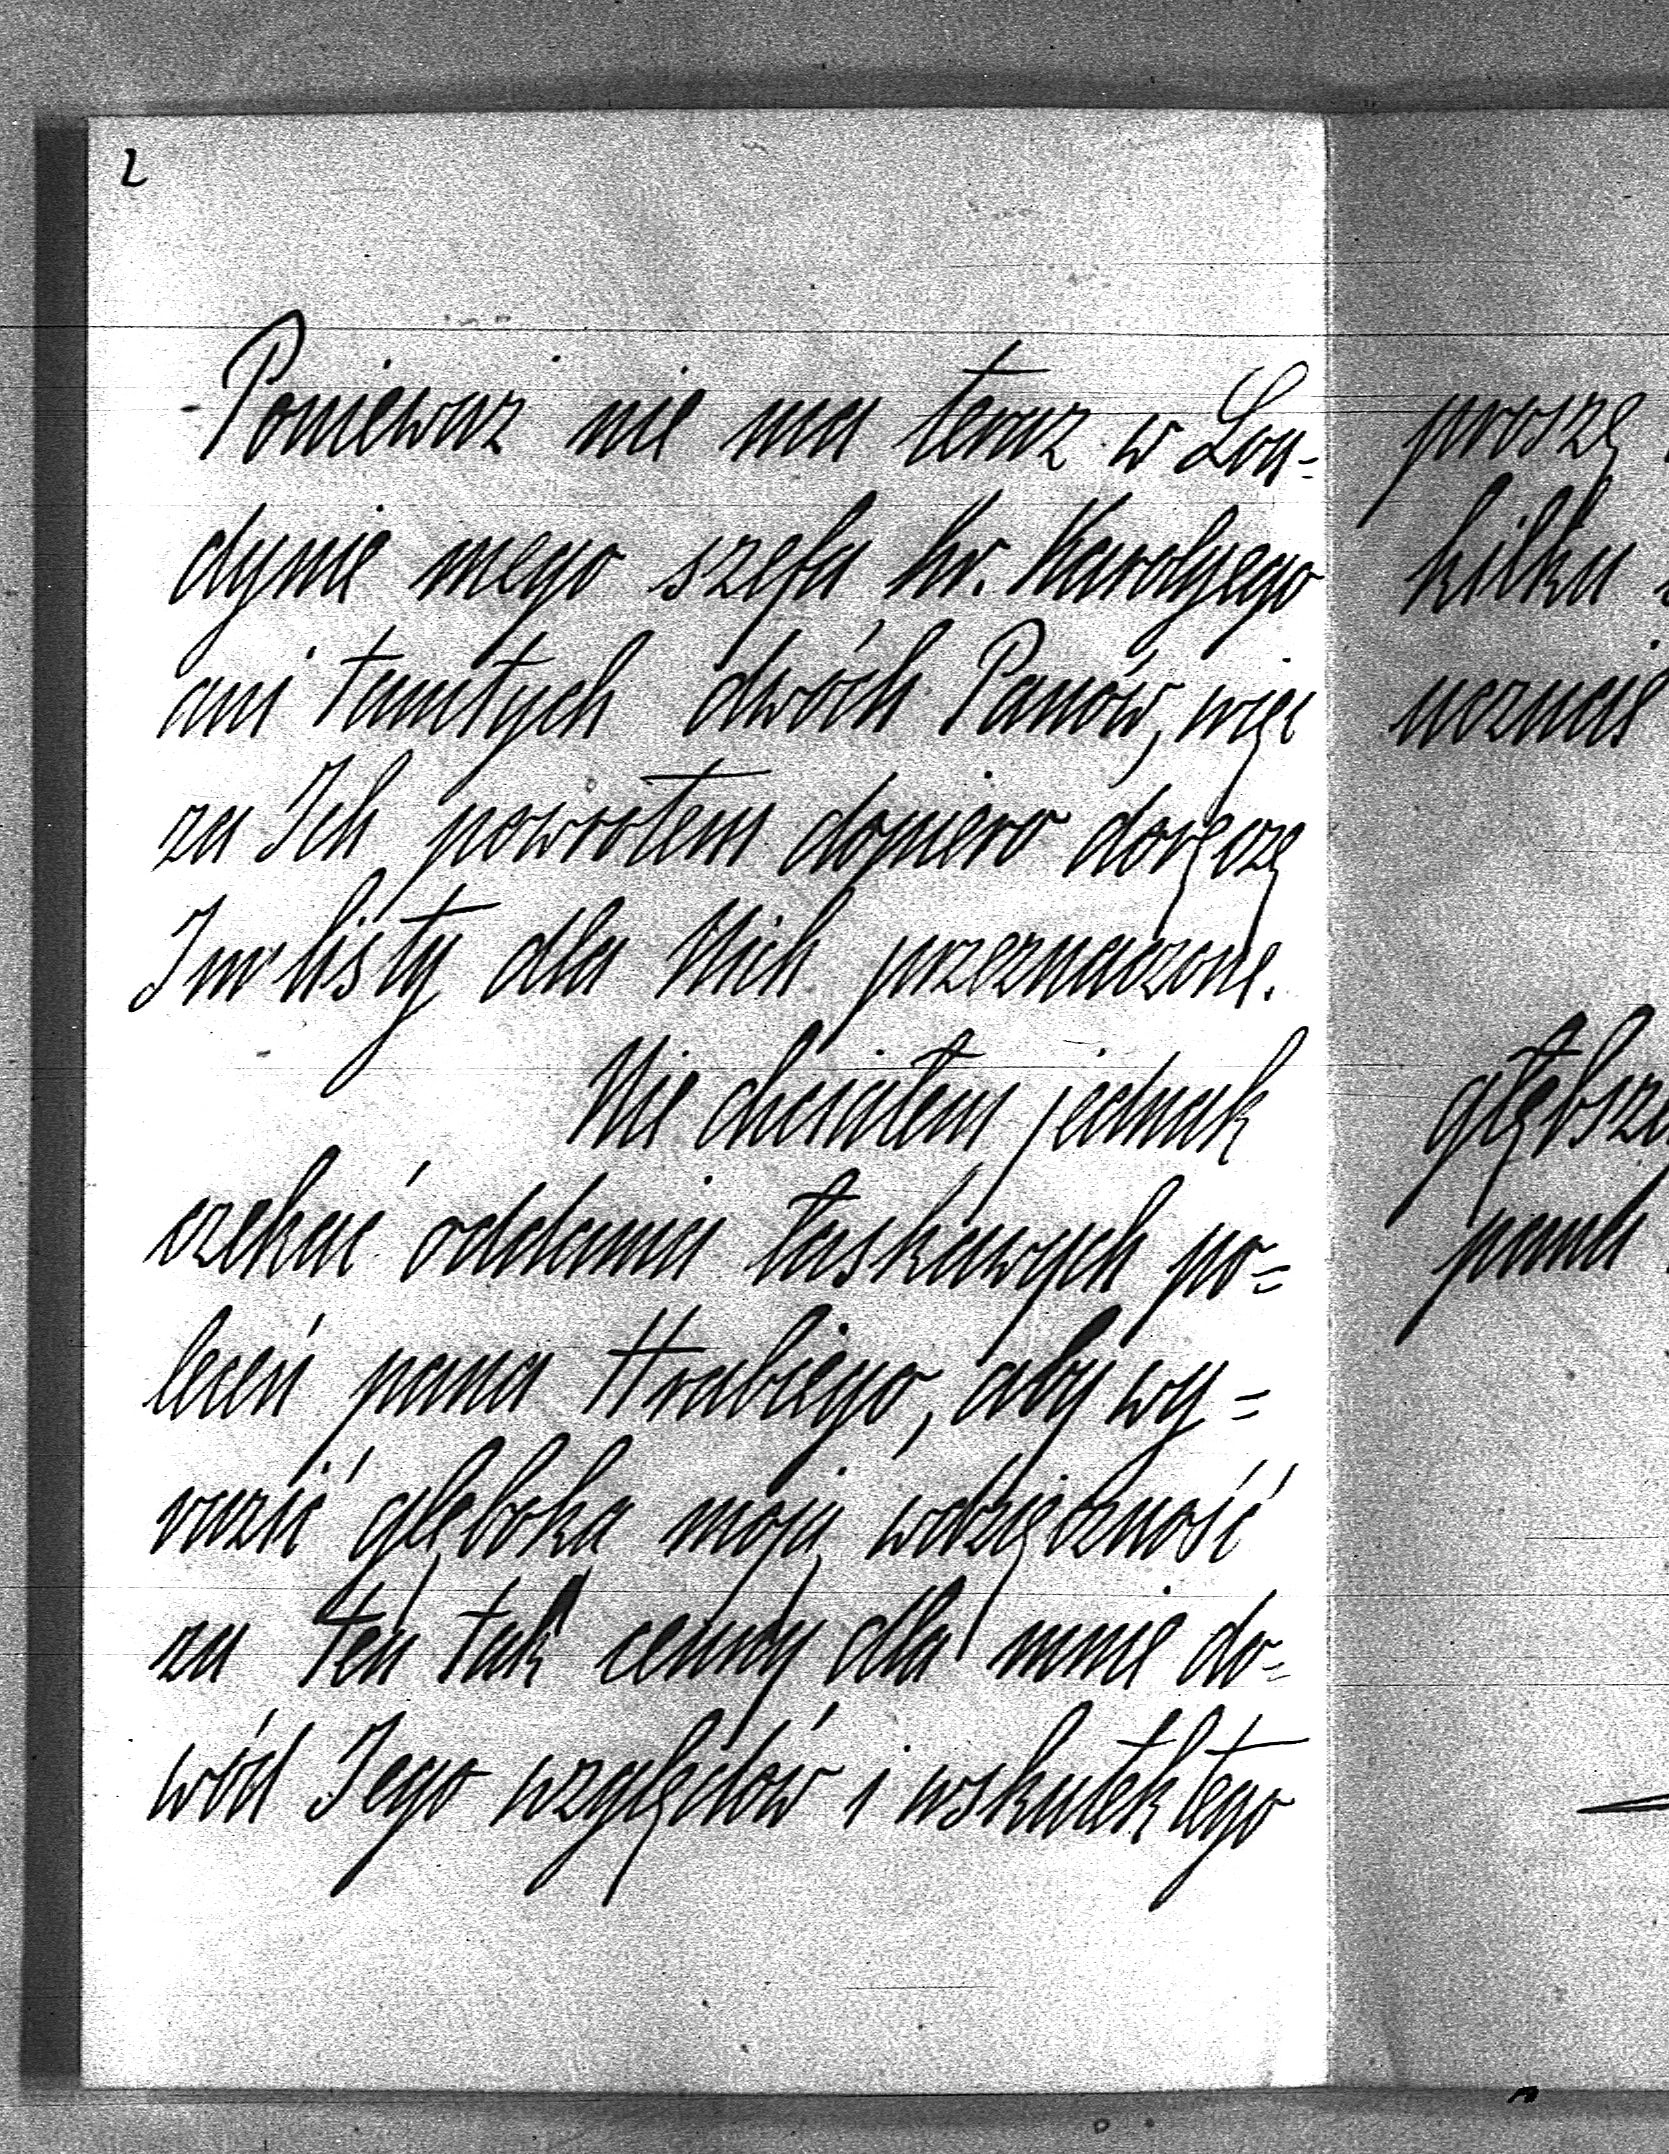 2
Ponieważ nie ma teraz w Lon=
dynie mego szefa hr. Karolyego
ani tamtych dwóch Panów, więc
za Ich powrotem dopiero doręczę
Im listy dla Nich przeznaczone.
Nie chciałem jednak
czekać oddania łaskawych po=
leceń pana Hrabiego, aby wy=
razić głęboką moją wdzięczność
za ten tak cenny dla mnie do=
wód Jego względów i wskutek tego
proszę
kilku
uczucie
głębsze
pana